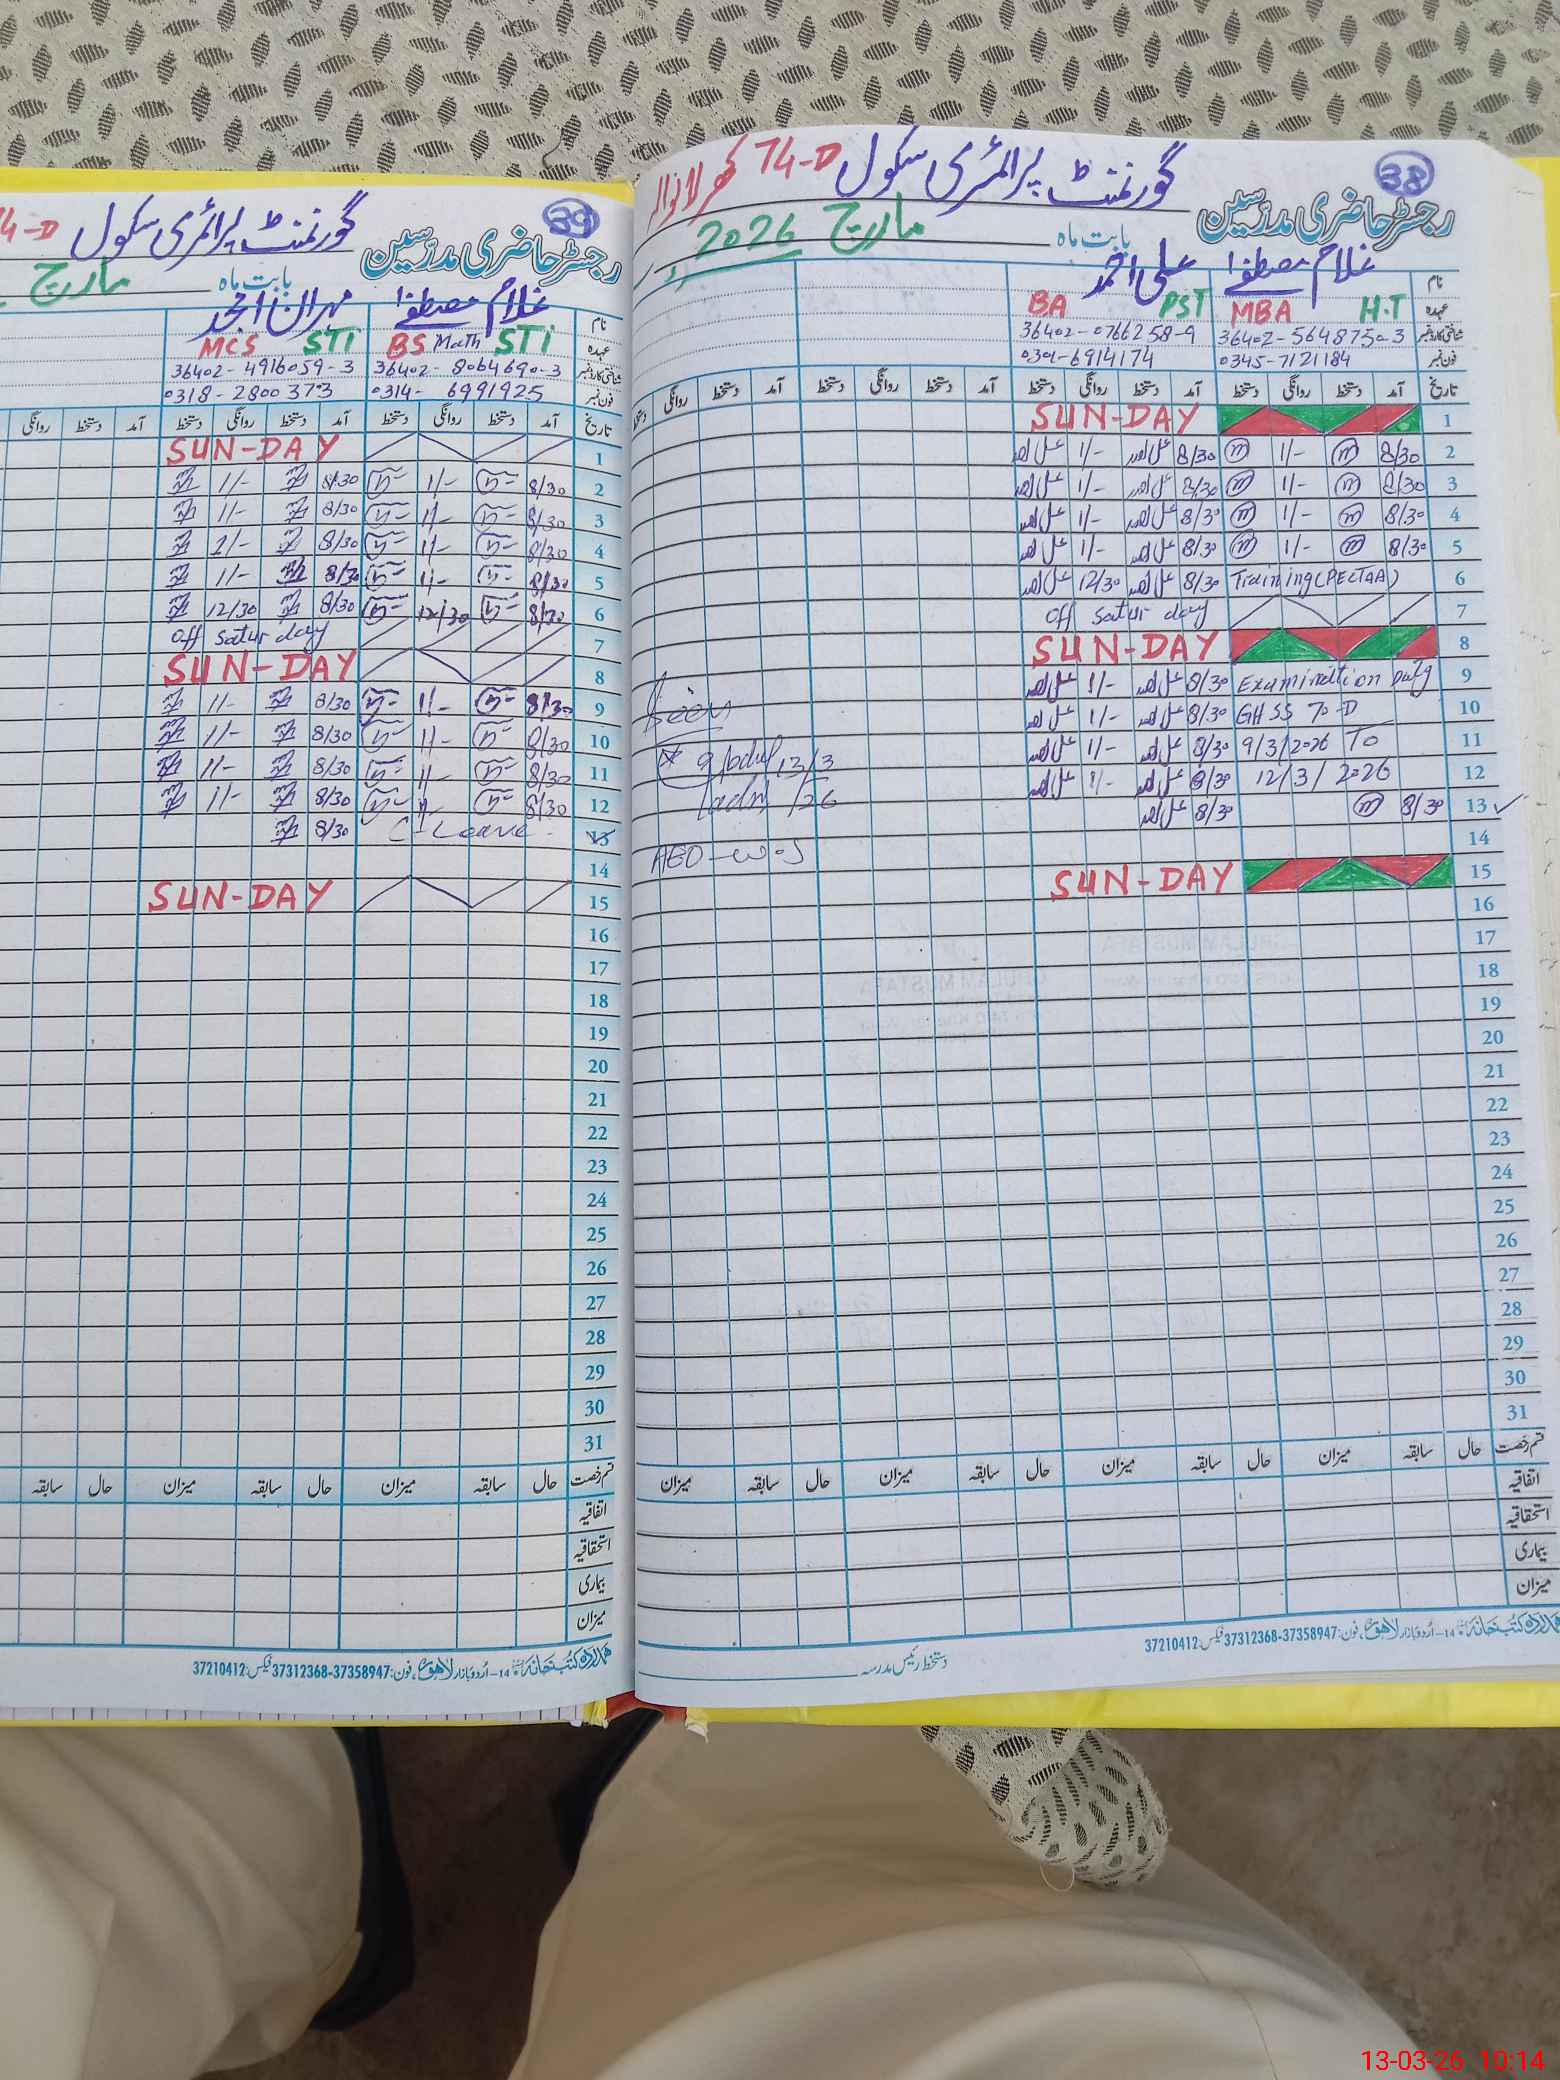 رجسٹر حاضری مدرسین
38
گورنمنٹ پرائمری سکول 74-D کھرلانوالہ
بابت ماہ مارچ 2026
نام غلام مصطفیٰ علی احمد
عہدہ MBA H.T BA PST
شناختی کارڈ نمبر 36402-5648750-3 36402-0766258-9
فون نمبر 0345-7121184 0301-6914174
تاریخ آمد دستخط روانگی دستخط آمد دستخط روانگی دستخط آمد دستخط روانگی دستخط آمد دستخط روانگی دستخط
1 SUN-DAY
2 8/30 m 1/- m 8/30 علی احمد 1/- علی احمد
3 8/30 m 1/- m 8/30 علی احمد 1/- علی احمد
4 8/30 m 1/- m 8/30 علی احمد 1/- علی احمد
5 8/30 m 1/- m 8/30 علی احمد 1/- علی احمد
6 Training (PECTAA) 8/30 علی احمد 12/30 علی احمد
7 off Saturday
8 SUN-DAY
9 Examination Duty 8/30 علی احمد 1/- علی احمد
10 GHSS 70-D 8/30 علی احمد 1/- علی احمد
11 9/3/2026 To 8/30 علی احمد 1/- علی احمد
12 12/3/2026 8/30 علی احمد 1/- علی احمد
13 8/30 m 8/30 علی احمد
14
15 SUN-DAY
16
17
18
19
20
21
22
23
24
25
26
27
28
29
30
31
Seen
12/3
/26
AEO-W-S
قسم رخصت حال سابقہ میزان حال سابقہ میزان حال سابقہ میزان حال سابقہ میزان
اتفاقیہ
استحقاقیہ
بیماری
میزان
ہمدرد کتب خانہ 14-اُردو بازار لاہور، فون: 37358947-37312368 فیکس: 37210412
دستخط رئیس مدرسہ
رجسٹر حاضری مدرسین
39
گورنمنٹ پرائمری سکول 4-D
بابت ماہ مارچ
نام غلام مصطفیٰ مہران امجد
عہدہ BS Math STi MCS STi
شناختی کارڈ نمبر 36402-8064690-3 36402-4916059-3
فون نمبر 0314-6991925 0318-2800373
تاریخ آمد دستخط روانگی دستخط آمد دستخط روانگی دستخط آمد دستخط روانگی
1 SUN-DAY
2 8/30 1/- 8/30 1/-
3 8/30 1/- 8/30 1/-
4 8/30 1/- 8/30 1/-
5 8/30 1/- 8/30 1/-
6 8/30 12/30 8/30 12/30
7 off Saturday
8 SUN-DAY
9 8/30 1/- 8/30 1/-
10 8/30 1/- 8/30 1/-
11 8/30 1/- 8/30 1/-
12 8/30 8/30 1/-
13 C-Leave 8/30
14
15 SUN-DAY
16
17
18
19
20
21
22
23
24
25
26
27
28
29
30
31
قسم رخصت حال سابقہ میزان حال سابقہ میزان حال سابقہ
اتفاقیہ
استحقاقیہ
بیماری
میزان
ہمدرد کتب خانہ 14-اُردو بازار لاہور، فون: 37358947-37312368 فیکس: 37210412
13-03-26 10:14